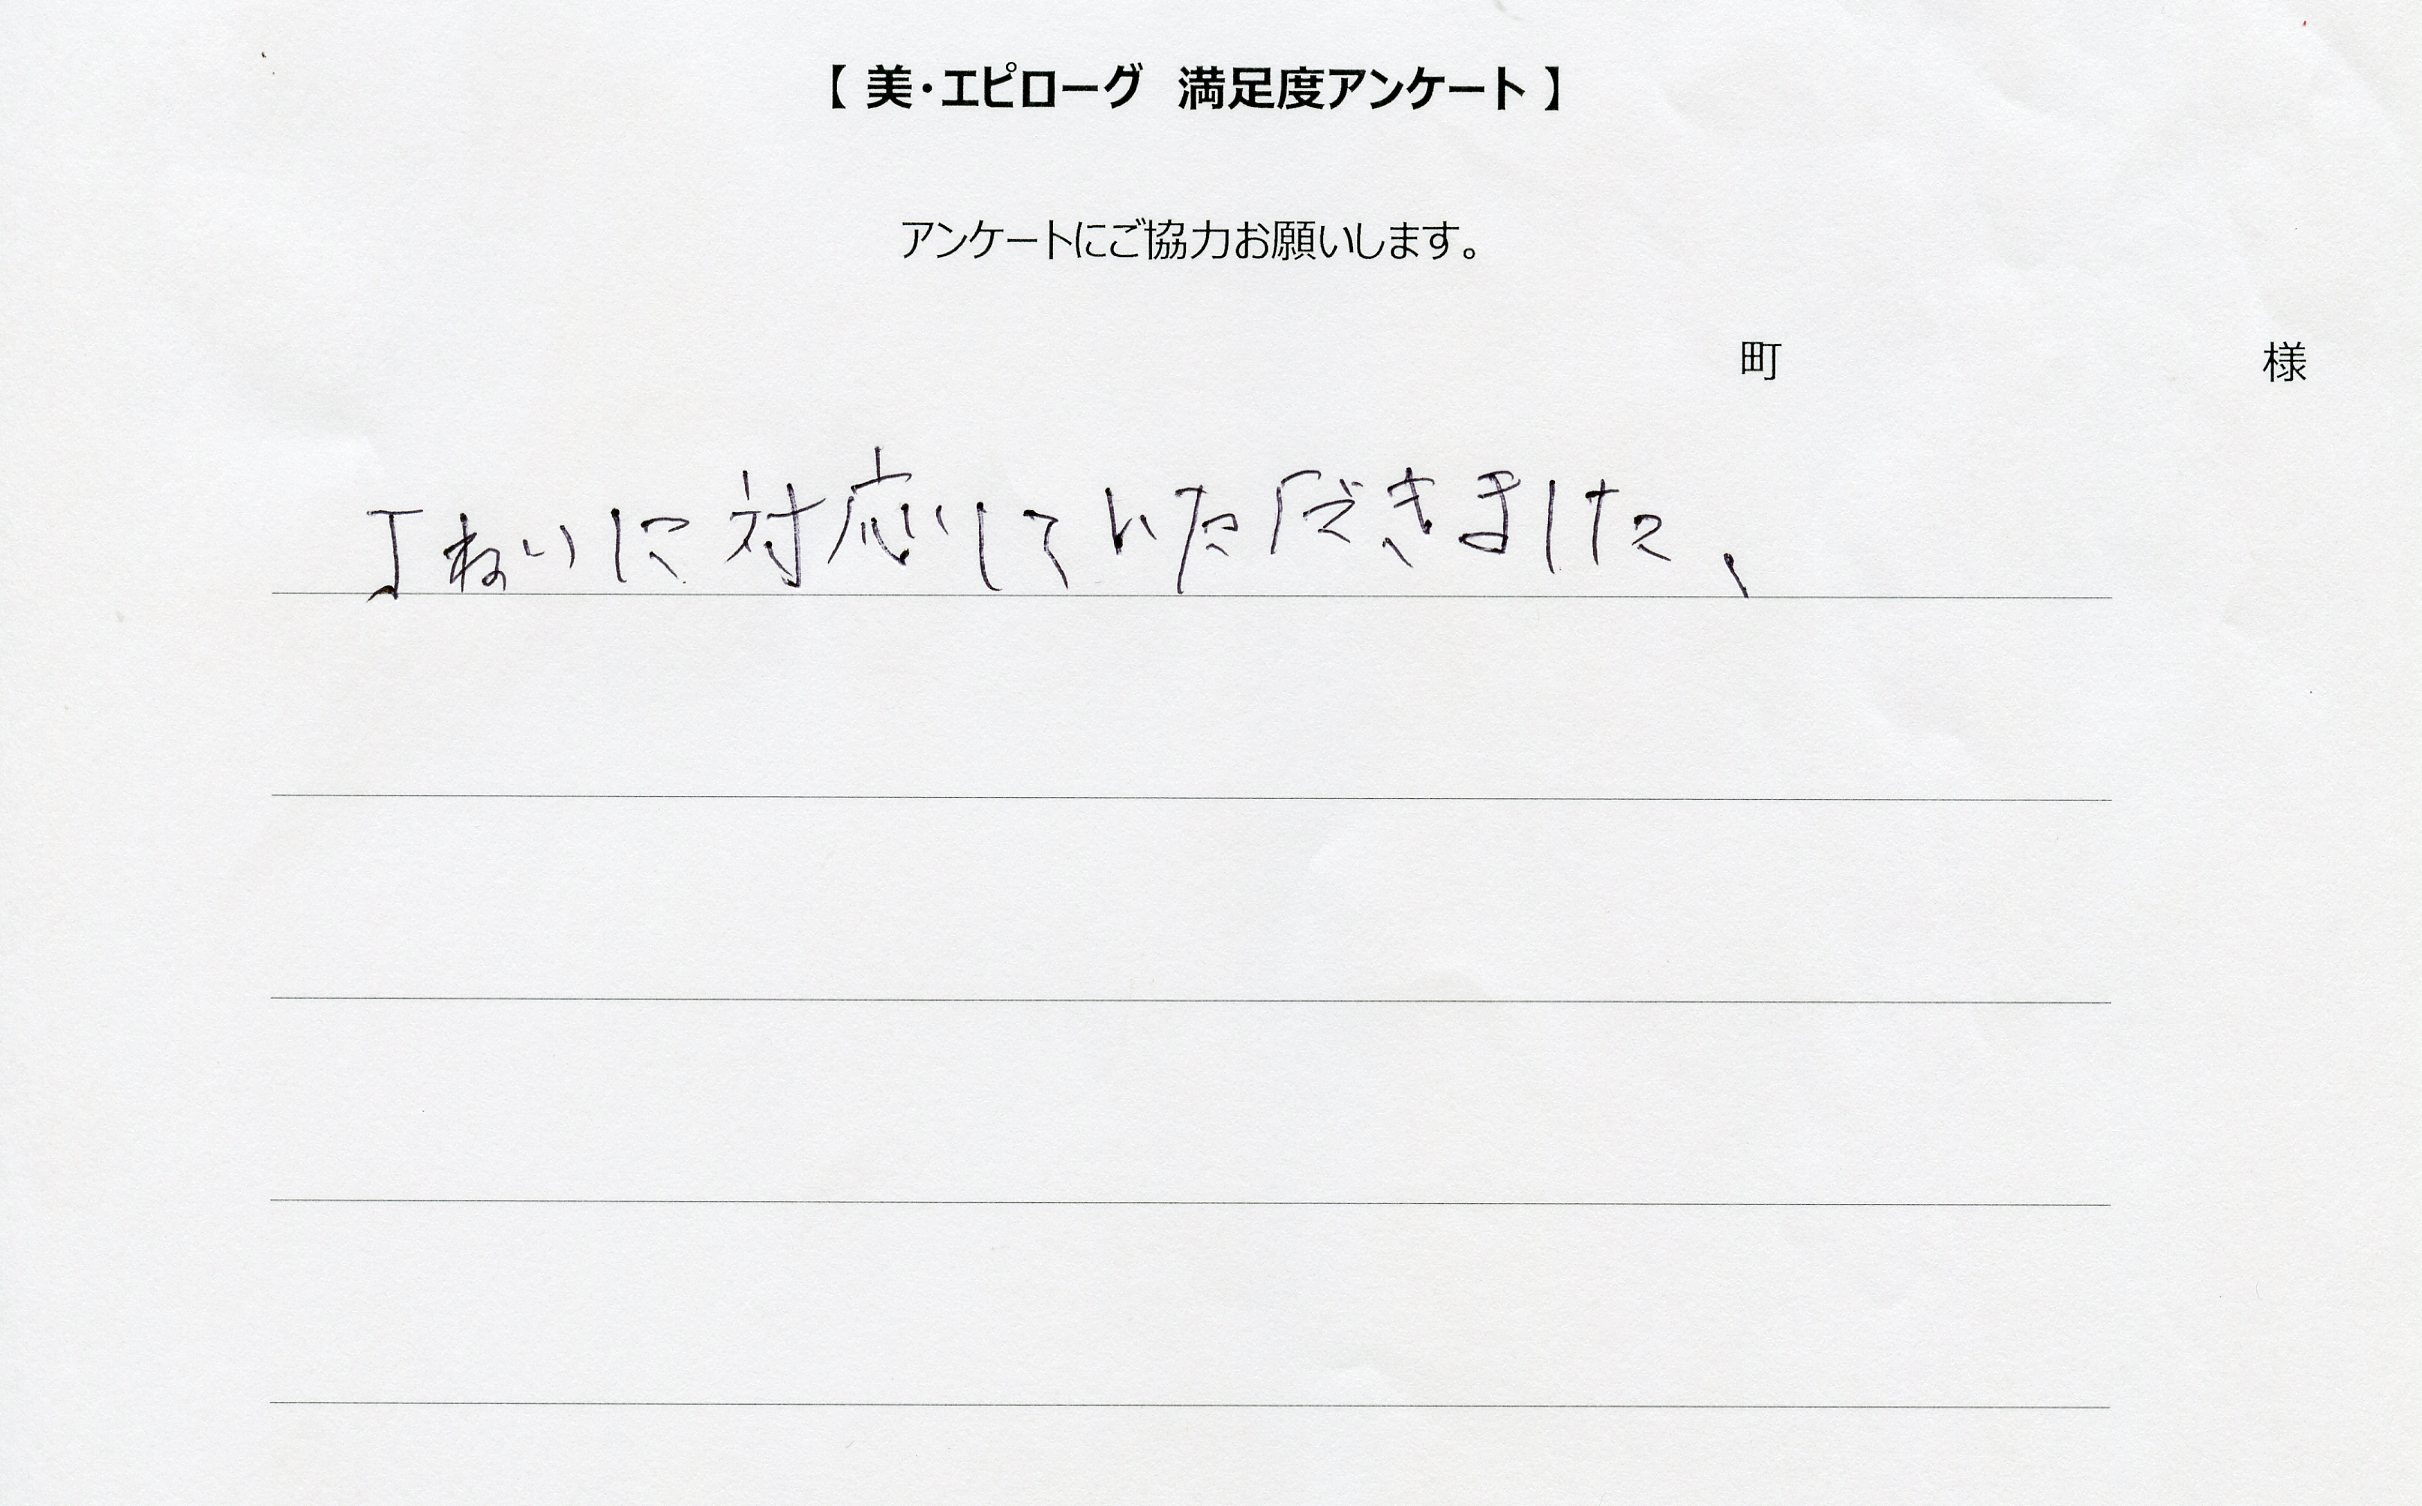 【 美・エピローグ 満足度アンケート 】
アンケートにご協力お願いします。
町 様
丁ねいに対応していただきました、